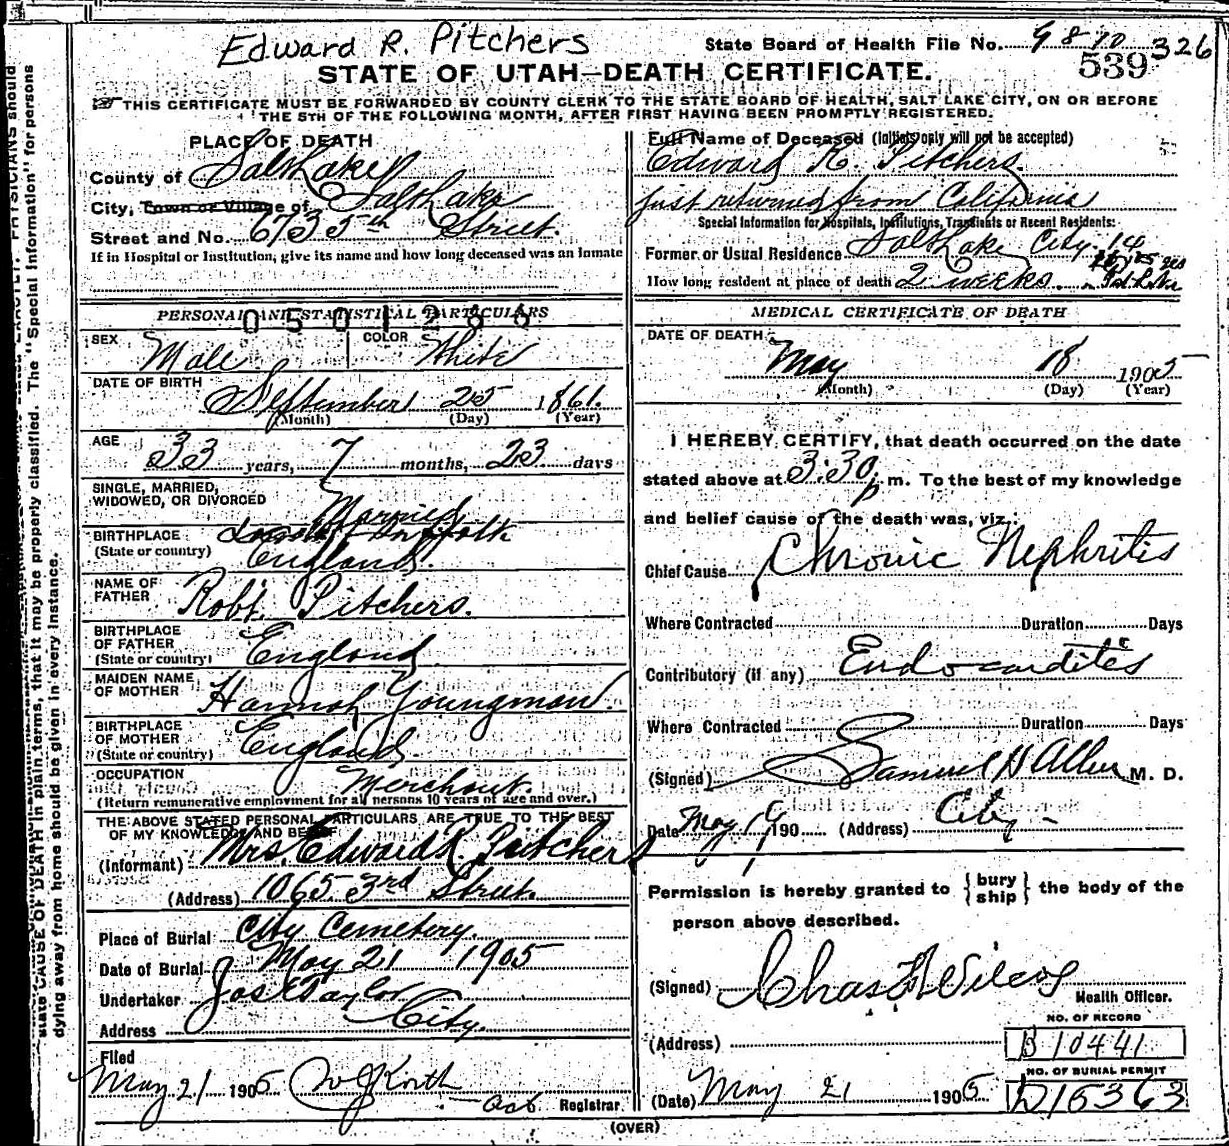 Edward R. Pitchers
State Board of Health File No. 9810 326
539
STATE OF UTAH—DEATH CERTIFICATE.
THIS CERTIFICATE MUST BE FORWARDED BY COUNTY CLERK TO THE STATE BOARD OF HEALTH, SALT LAKE CITY, ON OR BEFORE
THE 5TH OF THE FOLLOWING MONTH, AFTER FIRST HAVING BEEN PROMPTLY REGISTERED.
PLACE OF DEATH
County of Salt Lake
City, Town or Village of Salt Lake
Street and No. 673 5th Street.
If in Hospital or Institution, give its name and how long deceased was an inmate
Full Name of Deceased (Initials only will not be accepted)
Edward R. Pitchers
just returned from California
Special Information for Hospitals, Institutions, Transients or Recent Residents:
Former or Usual Residence Salt Lake City. 14
How long resident at place of death 2 weeks.
PERSONAL AND STATISTICAL PARTICULARS
0501266
SEX Male COLOR White
DATE OF BIRTH September 25 1861.
(Month) (Day) (Year)
AGE 33 years, 7 months, 23 days
SINGLE, MARRIED,
WIDOWED, OR DIVORCED Married
BIRTHPLACE
(State or country) England.
NAME OF
FATHER Robt. Pitchers.
BIRTHPLACE
OF FATHER
(State or country) England.
MAIDEN NAME
OF MOTHER Hannah Youngman.
BIRTHPLACE
OF MOTHER
(State or country) England.
OCCUPATION Merchant.
(Return remunerative employment for all persons 10 years of age and over.)
THE ABOVE STATED PERSONAL PARTICULARS ARE TRUE TO THE BEST
OF MY KNOWLEDGE AND BELIEF
(Informant) Mrs. Edward R. Pitchers
(Address) 1065 3rd Street.
Place of Burial City Cemetery.
Date of Burial May 21 1905
Undertaker Jos E Taylor
Address City.
Filed
May 21 1905 Registrar.
MEDICAL CERTIFICATE OF DEATH
DATE OF DEATH
May 18 1905
(Month) (Day) (Year)
I HEREBY CERTIFY, that death occurred on the date
stated above at 3:30 p m. To the best of my knowledge
and belief cause of the death was, viz.:
Chief Cause Chronic Nephritis
Where Contracted Duration Days
Contributory (if any) Endocarditis
Where Contracted Duration Days
(Signed) Samuel H Allen M. D.
Date May 19 190 (Address) City
Permission is hereby granted to { bury
ship } the body of the
person above described.
(Signed) Chas F Wilcox
Health Officer.
NO. OF RECORD
(Address) B 10441
NO. OF BURIAL PERMIT
(Date) May 21 1905 D15363
(OVER)
state CAUSE OF DEATH in plain terms, that it may be properly classified. The "Special Information" for persons
dying away from home should be given in every instance.